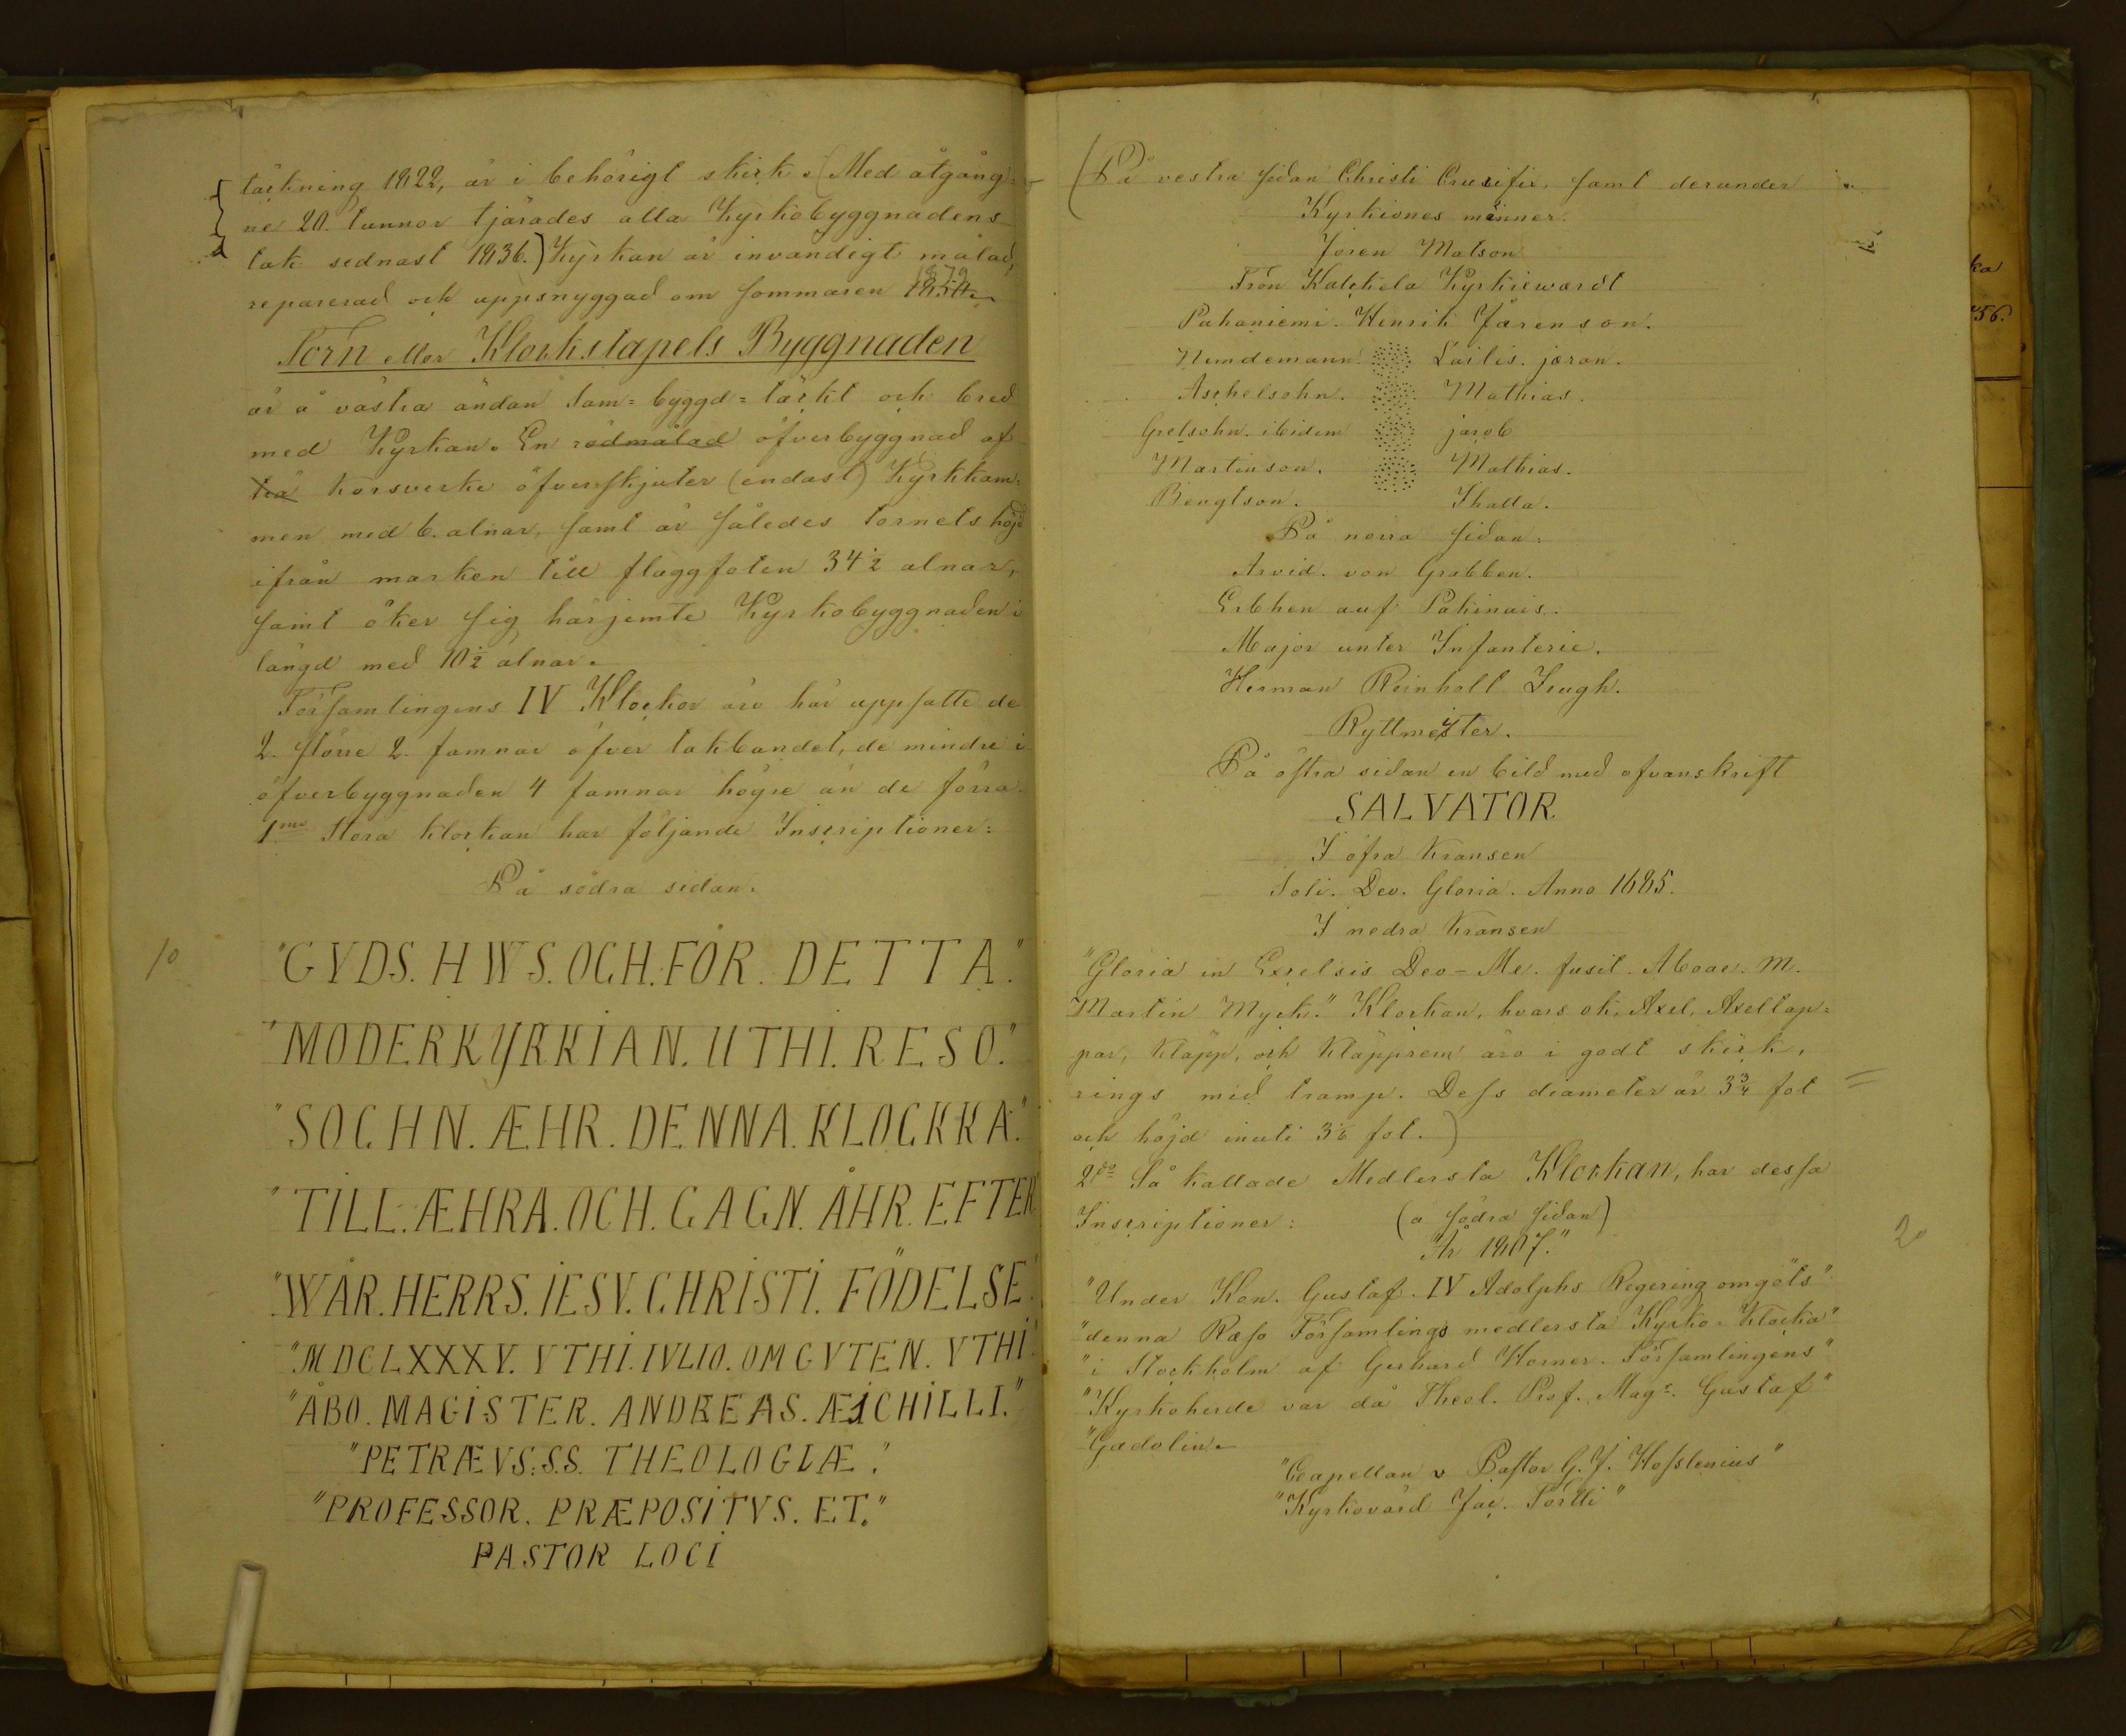 täckning 1822, är i behörigt skick. (Med åtgång
ne 20. tunnor tjärades alla Kyrkobyggnadens
tak sednast 1836.) Kyrkan är invändigt målad,
1879
reparerad och uppsnyggad om sommaren
Torn eller Klockstapels Byggnaden
är å västra ändan sam=byggd=täckt och bred
med Kyrkan. En rödmålad öfverbyggnad af
trä korsverke öfverskjuter (endast) Kyrkkam=
men med 6. alnar, samt är således tornets höjd
ifrån marken till flaggfoten 34 1/2 alnar,
samt öker sig härjemte Kyrkobyggnaden i
längd med 10 1/2 alnar.
Församlingens IV Klockor äro här uppsatte de
2. större 2. famnar öfver takbandet, de mindre i
öfverbyggnaden 4 famnar högre än de förra.
1mo Stora Klockan har följande Inscriptioner:
På södra sidan.
10
"GVDS. HWS. OCH. FÖR. DETTA."
"MODERKYRKIAN. UTHI. RESO."
"SOCHN. ÆHR. DENNA. KLOCKKA."
"TILL. ÆHRA. OCH. GAGN. ÅHR. EFTER
"WÅR. HERRS. IESV. CHRISTI. FÖDELSE."
"MDCLXXXV. VTHI. IVLIO. OM GVTEN. VTHI."
"ÅBO. MAGISTER. ANDREAS. ÆICHILLI."
"PETRÆVS: S.S. THEOLOGIÆ."
"PROFESSOR. PRÆPOSITVS. ET."
PASTOR LOCI
(På vestra sidan Christi Crucifix. samt derunder
Kyrkiones männer.
Jören Matson
Frön Kalckela Kyrkiewardt
Pahaniemi. Henrik Järenson.
Nemdemann. Lailis. jæran.
Aschelsohn. Mathias.
Gretsohn. ibidem jacob
Martinson. Mathias.
Bengtson. Ihalla.
På norra sidan.
Arvid. von Grabben.
Erbhen auf Pakinais.
Major unter Infanterie.
Herman Reinholt Jeugh.
Ryttmeister.
På östra sidan en bild med ofvanskrift
SALVATOR
I öfra Kransen
Soli. Deo. Gloria. Anno 1685.
I nedra Kransen
"Gloria in Excelsis Deo - Me. fusit. Aboae. M.
Martin Myck." Klockan, hvars ok, Axel, Axeltap=
par, Kläpp, och Kläpprem äro i godt skick,
rings med tramp. Dess diameter är 3 3/4 fot
och höjd inuti 3 1/6 fot.)
2do Så kallade Medlersta Klockan, har dessa
Inscriptioner: (å södra sidan)
År 1807."
2
"Under Kon. Gustaf. IV Adolphs Regering omgöts"
"denna Ræso Församlings medlersta Kyrko-Klocka"
"i Stockholm af Gerhard Horner. Församlingens"
"Kyrkoherde var då Theol. Prof. Magr. Gustaf"
"Gadolin.
"Capellan v Pastor G. J. Hosslenius"
"Kyrkovärd Jac. Sortti"
ka
56.